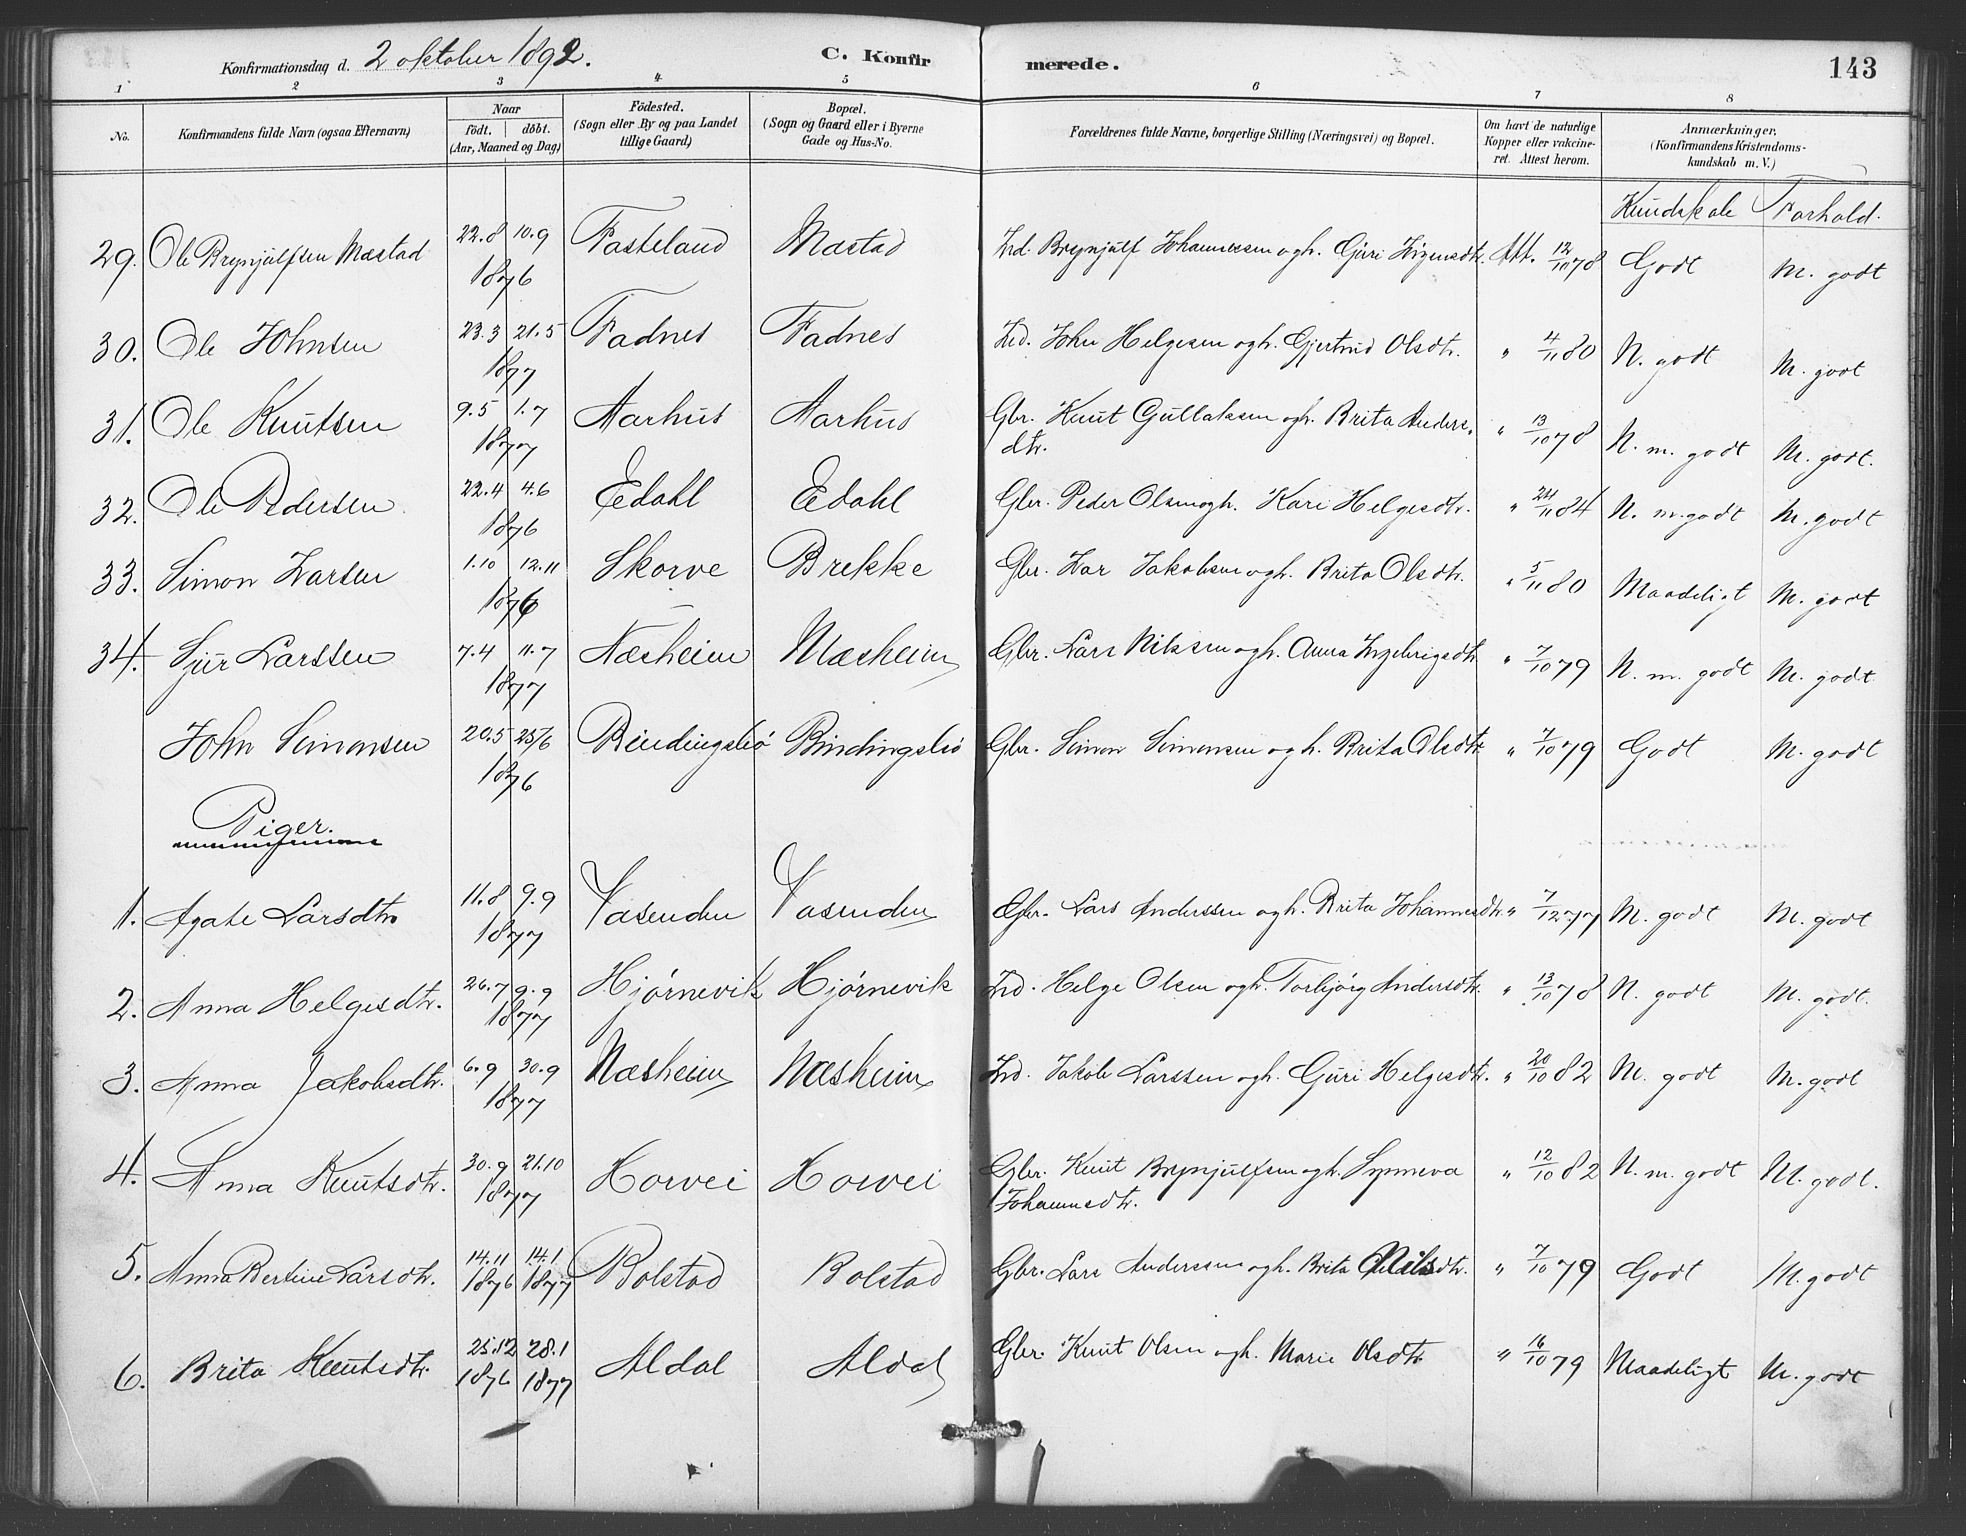 Konfirmationsdag d. 2 oktober 1892. C. Konfirmerede. 143
1 2 3 4 5 6 7 8
No. Konfirmandens fulde Navn (ogsaa Efternavn) Naar födt. döbt. (Aar, Maaned og Dag) Födested. (Sogn eller By og paa Landet tillige Gaard) Bopæl. (Sogn og Gaard eller i Byerne Gade og Hus-No. Forældrenes fulde Navne, borgerlige Stilling (Næringsvei) og Bopæl. Om havt de naturlige Kopper eller vakcineret. Attest herom. Anmærkninger. (Konfirmandens Kristendomskundskab m. V.)
Kundskab Forhold.
29. Ole Brynjulfsen Mæstad 22.8 10.9 1876 Fasteland Mæstad Ind. Brynjulf Johannessen og h. Guri Att. 12/10 78 Godt M. godt
30. Ole Johnsen 23.3 21.5 1877 Fadnes Fadnes Ind. John Helgesen og h. Gjertrud Olsdtr. " 4/11 80 N. godt M. godt
31. Ole Knutsen 9.5 1.7 1877 Aarhus Aarhus Gbr. Knut Gullaksen og h. Brita Andersdtr. " 13/10 78 N. m. godt M. godt.
32. Ole Pedersen 22.4 4.6 1876 Edahl Edahl Gbr. Peder Olsen og h. Kari Helgesdtr. " 24/11 84 N. m. godt M. godt
33. Simon Larsen 1.10 12.11 1876 Skorve Brekke Gbr. Lar Jakobsen og h. Brita Olsdtr. " 5/11 80 Maadeligt M. godt
34. Sjur Larssen 7.4 11.7 1877 Næsheim Næsheim Gbr. Lars Nilssen og h. Anna Ingebrigsdtr " 7/10 79 N. m. godt M. godt
John Simonsen 20.5 25/6 1876 Bindingsbø Bindingsbø Gbr. Simon Simonsen og h. Brita Olsdtr " 7/10 79 Godt M. godt
Piger.
1. Agate Larsdtr 11.8 9.9 1877 Vasenden Vasenden Gbr. Lars Anderssen og h. Brita Johannesdtr. " 7/12 77 M. godt M. godt
2. Anna Helgesdtr. 26.7 9.9 1877 Hjørnevik Hjørnevik Ind. Helge Olsen og h. Torbjörg Andersdtr. " 13/10 78 N. godt M. godt.
3. Anna Jakobsdtr. 6.9 30.9 1877 Næsheim Næsheim Ind. Jakob Larssen og h. Guri Helgesdtr. " 20/10 82 M. godt M. godt
4. Anna Knutsdtr. 30.9 21.10 1877 Horvei Horvei Gbr. Knut Brynjulfsen og h. Synneva Johannesdtr. " 12/10 82 N. m. godt M. godt.
5. Anna Bertine Larsdtr. 14.11 1876 14.1 1877 Bolstad Bolstad Gbr. Lars Anderssen og h. Brita Nilsdtr. " 7/10 79 Godt M. godt
6. Brita Knutsdtr. 25.12 1876 28.1 1877 Aldal Aldal Gbr. Knut Olsen og h. Marie Olsdtr " 16/10 79 Maadeligt M. godt